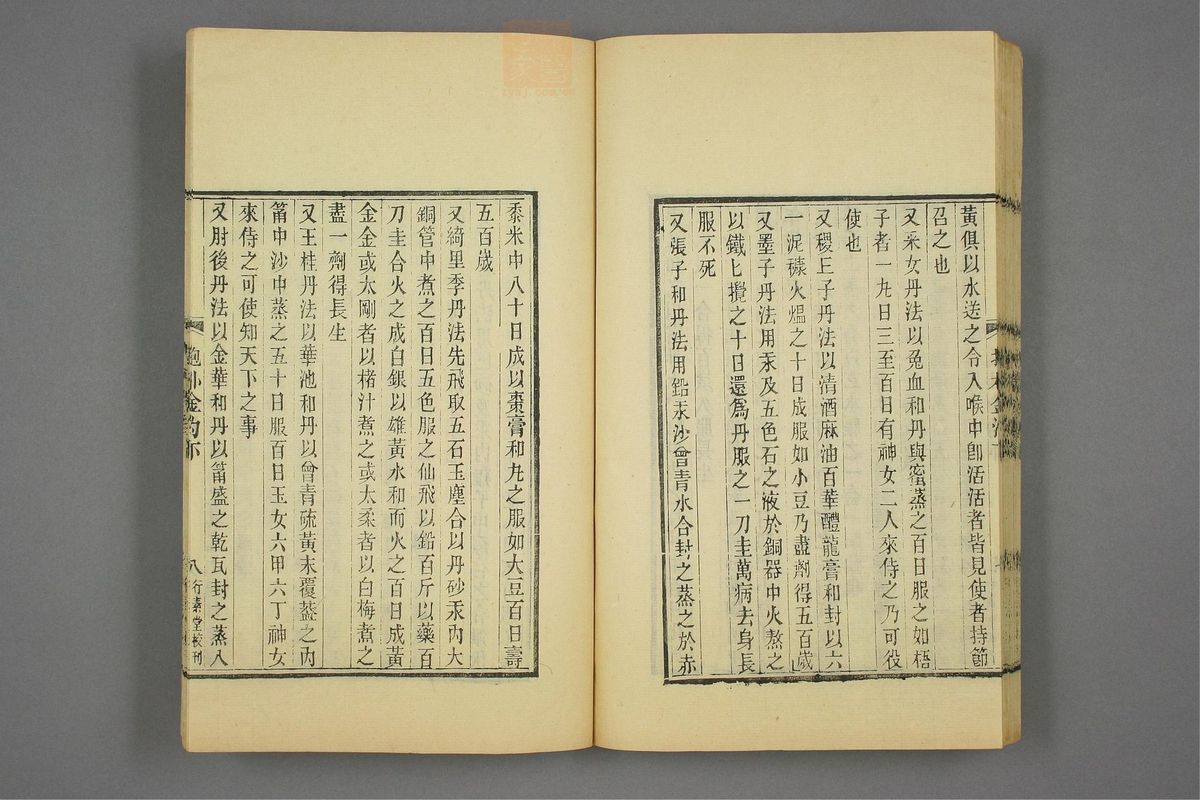 黃俱以水送之令入喉中卽活活者皆見使者持節
召之也
又采女丹法以兔血和丹與蜜蒸之百日服之如梧
子者一丸日三至百日有神女二人來侍之乃可役
使也
又稷丘子丹法以清酒麻油百華醴龍膏和封以六
一泥糠火熅之十日成服如小豆乃盡劑得五百歲
又墨子丹法用汞及五色石之液於銅器中火熬之
以鐵匕攪之十日還爲丹服之一刀圭萬病去身長
服不死
又張子和丹法用鉛汞沙曾青水合封之蒸之於赤
黍米中八十日成以棗膏和丸之服如大豆百日壽
五百歲
又綺里季丹法先飛取五石玉塵合以丹砂汞內大
銅管中煮之百日五色服之仙飛以鉛百斤以藥百
刀圭合火之成白銀以雄黃水和而火之百日成黃
金金或太剛者以楮汁煮之或太柔者以白梅煮之
盡一劑得長生
又王柱丹法以華池和丹以曾青硫黃末覆蓋之內
筩中沙中蒸之五十日服百日玉女六甲六丁神女
來侍之可使知天下之事
又肘後丹法以金華和丹以筩盛之乾瓦封之蒸八
八
行素堂校刊